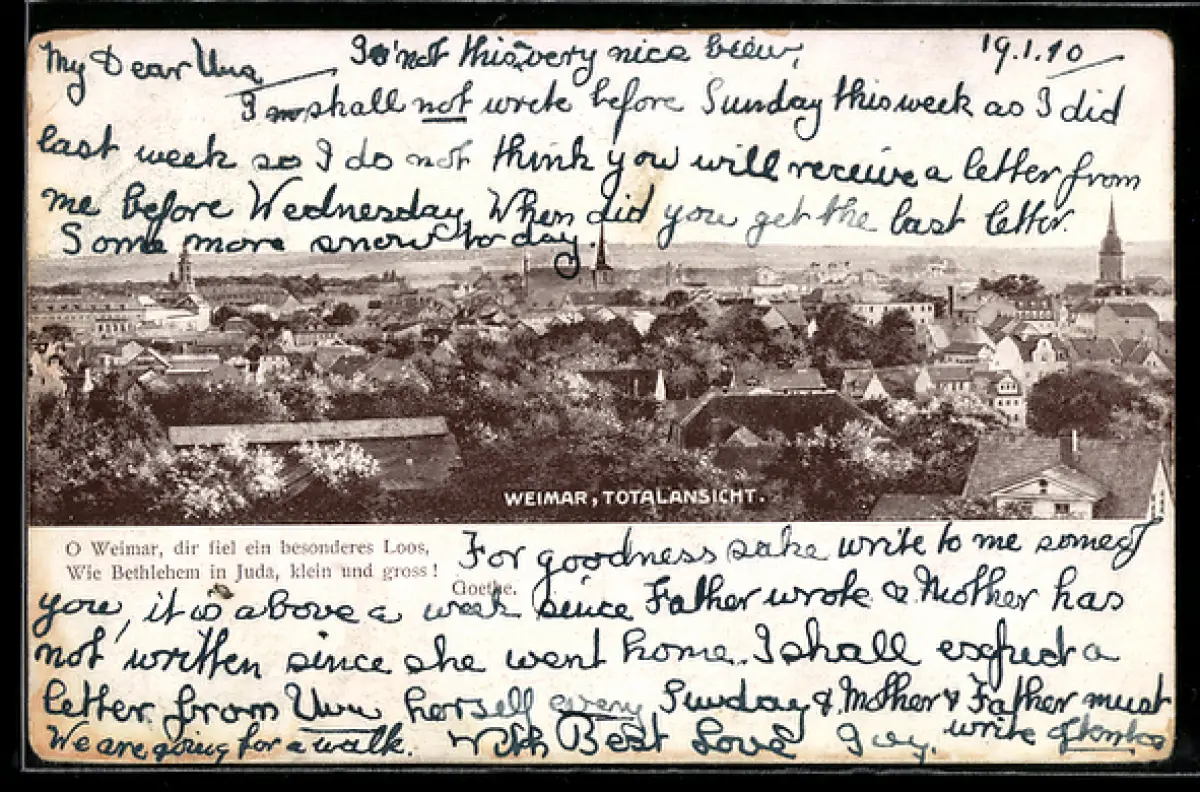 My Dear Una
Is not this very nice view,
19.1.10
I shall not write before Sunday this week as I did
last week so I do not think you will receive a letter from
me before Wednesday. When did you get the last letter.
Some more snow to day.
WEIMAR, TOTALANSICHT.
O Weimar, dir fiel ein besonderes Loos,
Wie Bethlehem in Juda, klein und gross!
Goethe.
For goodness sake write to me some of
you, it is above a week since Father wrote & Mother has
not written since she went home. I shall expect a
letter from Una herself every Sunday & Mother & Father must
write often too
We are going for a walk. With Best Love Guy.